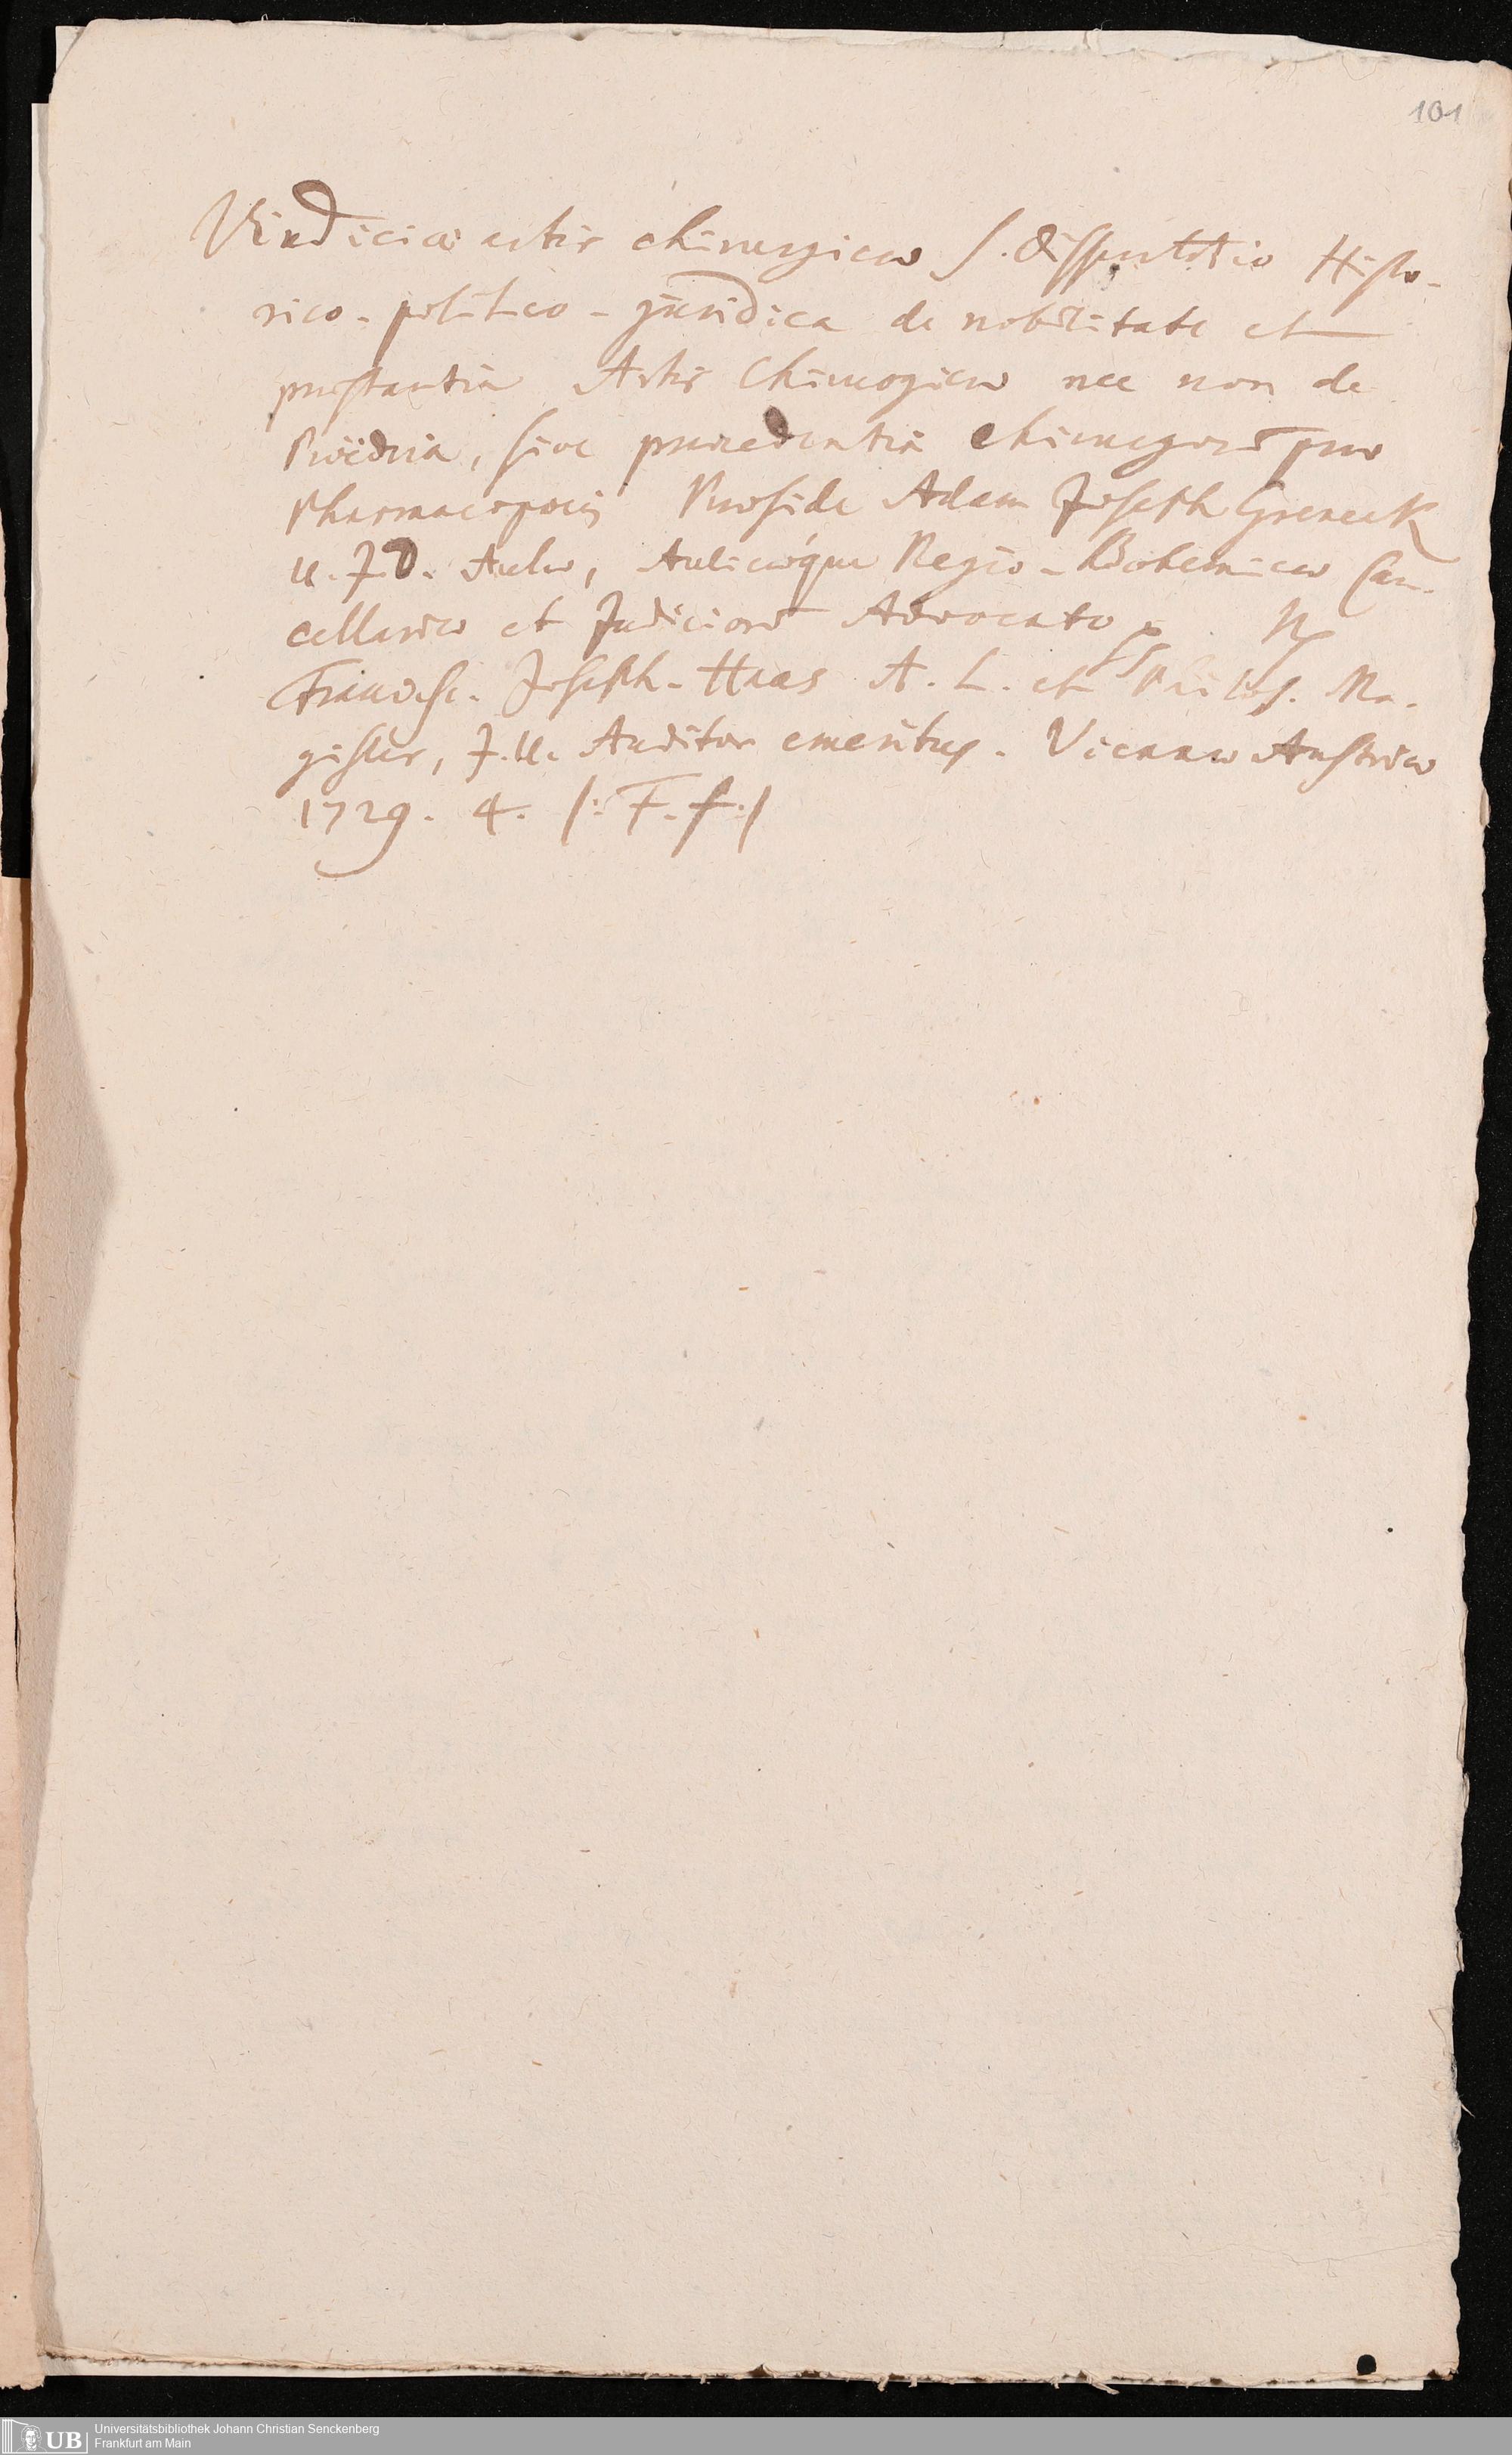 101
Vindiciæ artis chirurgicæ s. disputatio Histo-
rico-politico-juridica de nobilitate et
præstantia Artis Chirurgicæ nec non de
Proëdria, sive præcedentia Chirurgorū præ
Pharmacopoeis Præside Adam Joseph Greneck
U.J.D. Aulæ, Aulicæque Regio-Bohemicæ Can-
cellariæ et Judiciorū Advocato
Francisc. Joseph. Haas A. L. et Philos. Ma-
gister, J.U. Auditor emeritus. Viennæ Austriæ
1729. 4. /: F. f :/
UB
Universitätsbibliothek Johann Christian Senckenberg
Frankfurt am Main